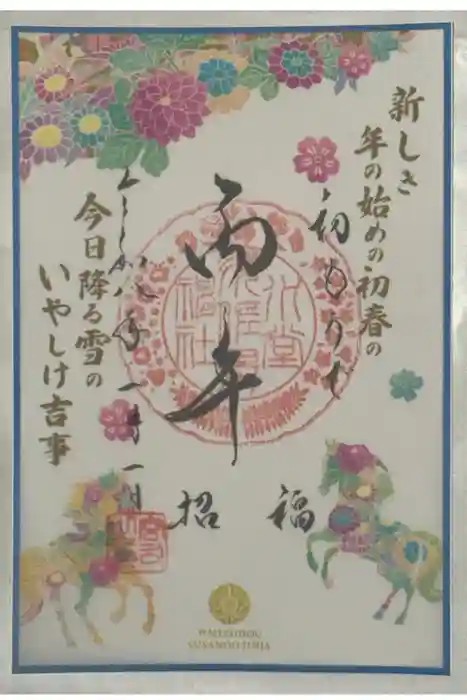 新しき
年の始めの初春の
初もうで
丙午
今日降る雪の
いやしけ吉事
令和八年一月一日
招 福
SUSANOO JINJA